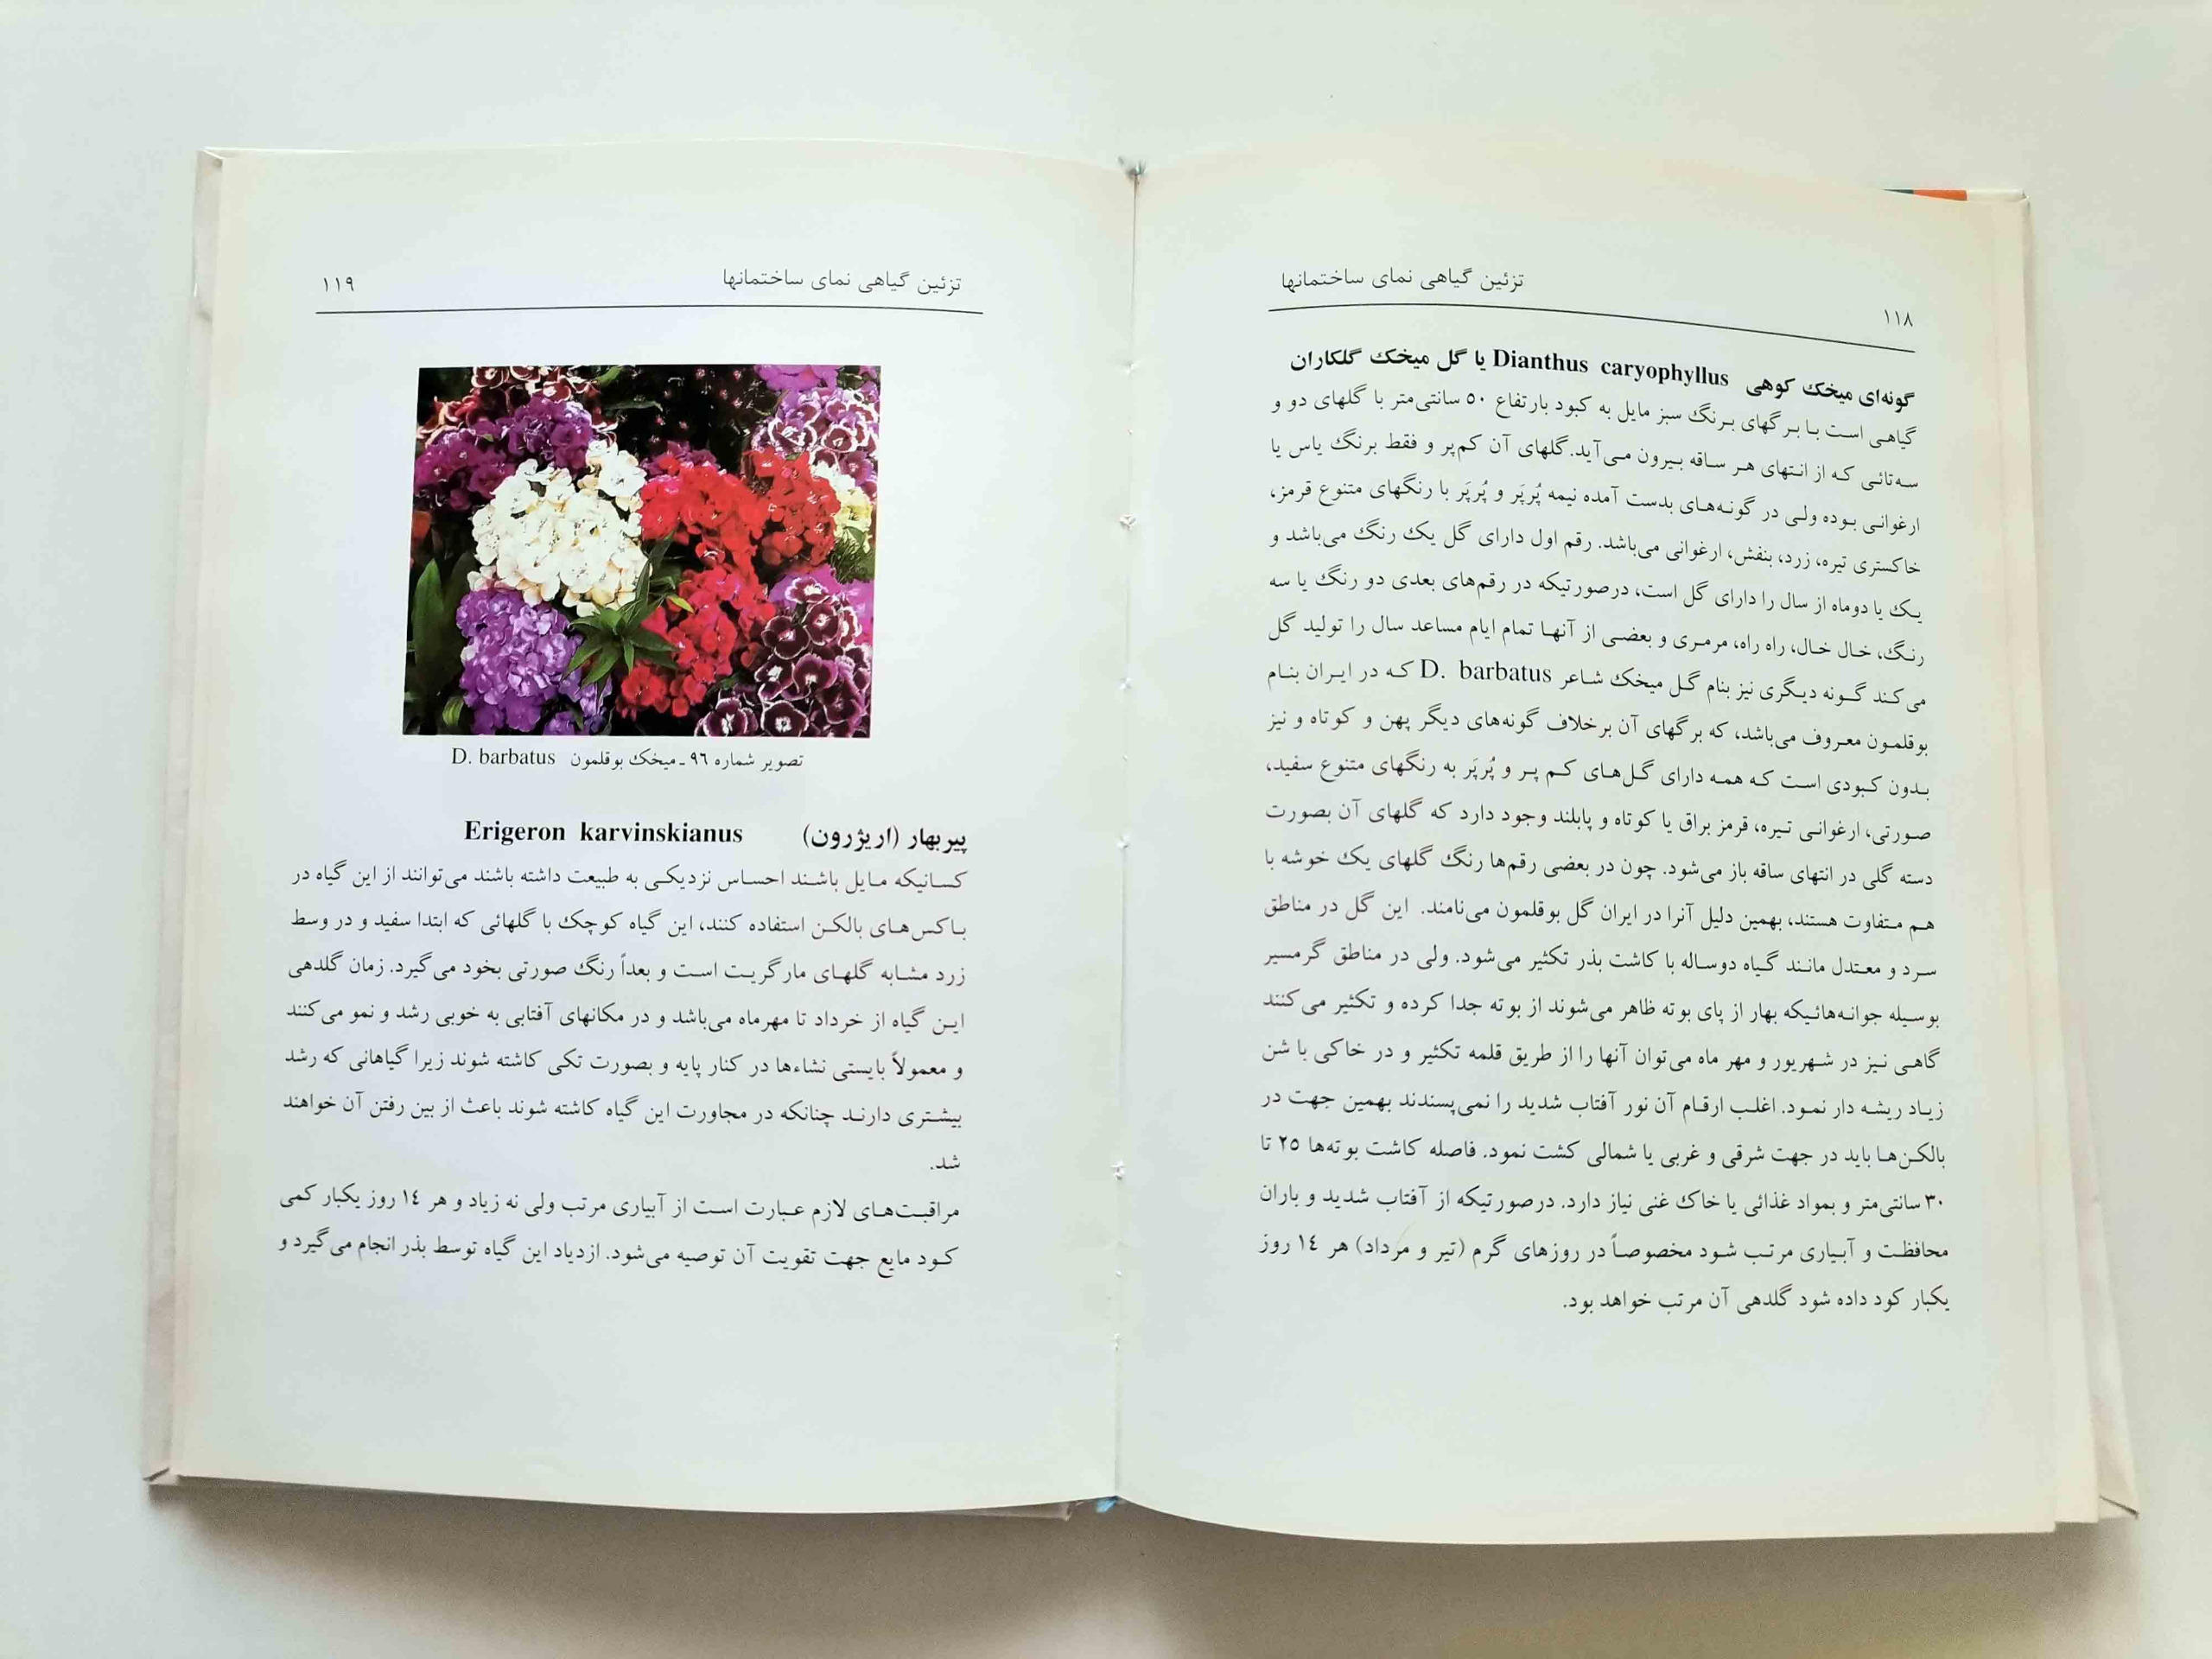 ۱۱۸
تزئین گیاهی نمای ساختمانها
گونه‌ای میخک کوهی Dianthus caryophyllus یا گل میخک گلکاران
گیاهی است با برگهای برنگ سبز مایل به کبود بارتفاع ۵۰ سانتی‌متر با گلهای دو و
سه‌تائی که از انتهای هر ساقه بیرون می‌آید. گلهای آن کم‌پر و فقط برنگ یاس یا
ارغوانی بوده ولی در گونه‌های بدست آمده نیمه پُرپَر و پُرپَر با رنگهای متنوع قرمز،
خاکستری تیره، زرد، بنفش، ارغوانی می‌باشد. رقم اول دارای گل یک رنگ می‌باشد و
یک یا دوماه از سال را دارای گل است، درصورتیکه در رقم‌های بعدی دو رنگ یا سه
رنگ، خال خال، راه راه، مرمری و بعضی از آنها تمام ایام مساعد سال را تولید گل
می‌کند گونه دیگری نیز بنام گل میخک شاعر D. barbatus که در ایران بنام
بوقلمون معروف می‌باشد، که برگهای آن برخلاف گونه‌های دیگر پهن و کوتاه و نیز
بدون کبودی است که همه دارای گل‌های کم پر و پُرپَر به رنگهای متنوع سفید،
صورتی، ارغوانی تیره، قرمز براق یا کوتاه و پابلند وجود دارد که گلهای آن بصورت
دسته گلی در انتهای ساقه باز می‌شود. چون در بعضی رقم‌ها رنگ گلهای یک خوشه با
هم متفاوت هستند، بهمین دلیل آنرا در ایران گل بوقلمون می‌نامند. این گل در مناطق
سرد و معتدل مانند گیاه دوساله با کاشت بذر تکثیر می‌شود. ولی در مناطق گرمسیر
بوسیله جوانه‌هائیکه بهار از پای بوته ظاهر می‌شوند از بوته جدا کرده و تکثیر می‌کنند
گاهی نیز در شهریور و مهر ماه می‌توان آنها را از طریق قلمه تکثیر و در خاکی با شن
زیاد ریشه دار نمود. اغلب ارقام آن نور آفتاب شدید را نمی‌پسندند بهمین جهت در
بالکن‌ها باید در جهت شرقی و غربی یا شمالی کشت نمود. فاصله کاشت بوته‌ها ۲۵ تا
۳۰ سانتی‌متر و بمواد غذائی یا خاک غنی نیاز دارد. درصورتیکه از آفتاب شدید و باران
محافظت و آبیاری مرتب شود مخصوصاً در روزهای گرم (تیر و مرداد) هر ۱٤ روز
یکبار کود داده شود گلدهی آن مرتب خواهد بود.
تزئین گیاهی نمای ساختمانها
۱۱۹
تصویر شماره ۹٦ ـ میخک بوقلمون D. barbatus
پیربهار (اریژرون) Erigeron karvinskianus
کسانیکه مایل باشند احساس نزدیکی به طبیعت داشته باشند می‌توانند از این گیاه در
باکس‌های بالکن استفاده کنند، این گیاه کوچک با گلهائی که ابتدا سفید و در وسط
زرد مشابه گلهای مارگریت است و بعداً رنگ صورتی بخود می‌گیرد. زمان گلدهی
این گیاه از خرداد تا مهرماه می‌باشد و در مکانهای آفتابی به خوبی رشد و نمو می‌کنند
و معمولاً بایستی نشاءها در کنار پایه و بصورت تکی کاشته شوند زیرا گیاهانی که رشد
بیشتری دارند چنانکه در مجاورت این گیاه کاشته شوند باعث از بین رفتن آن خواهند
شد.
مراقبت‌های لازم عبارت است از آبیاری مرتب ولی نه زیاد و هر ۱٤ روز یکبار کمی
کود مایع جهت تقویت آن توصیه می‌شود. ازدیاد این گیاه توسط بذر انجام می‌گیرد و